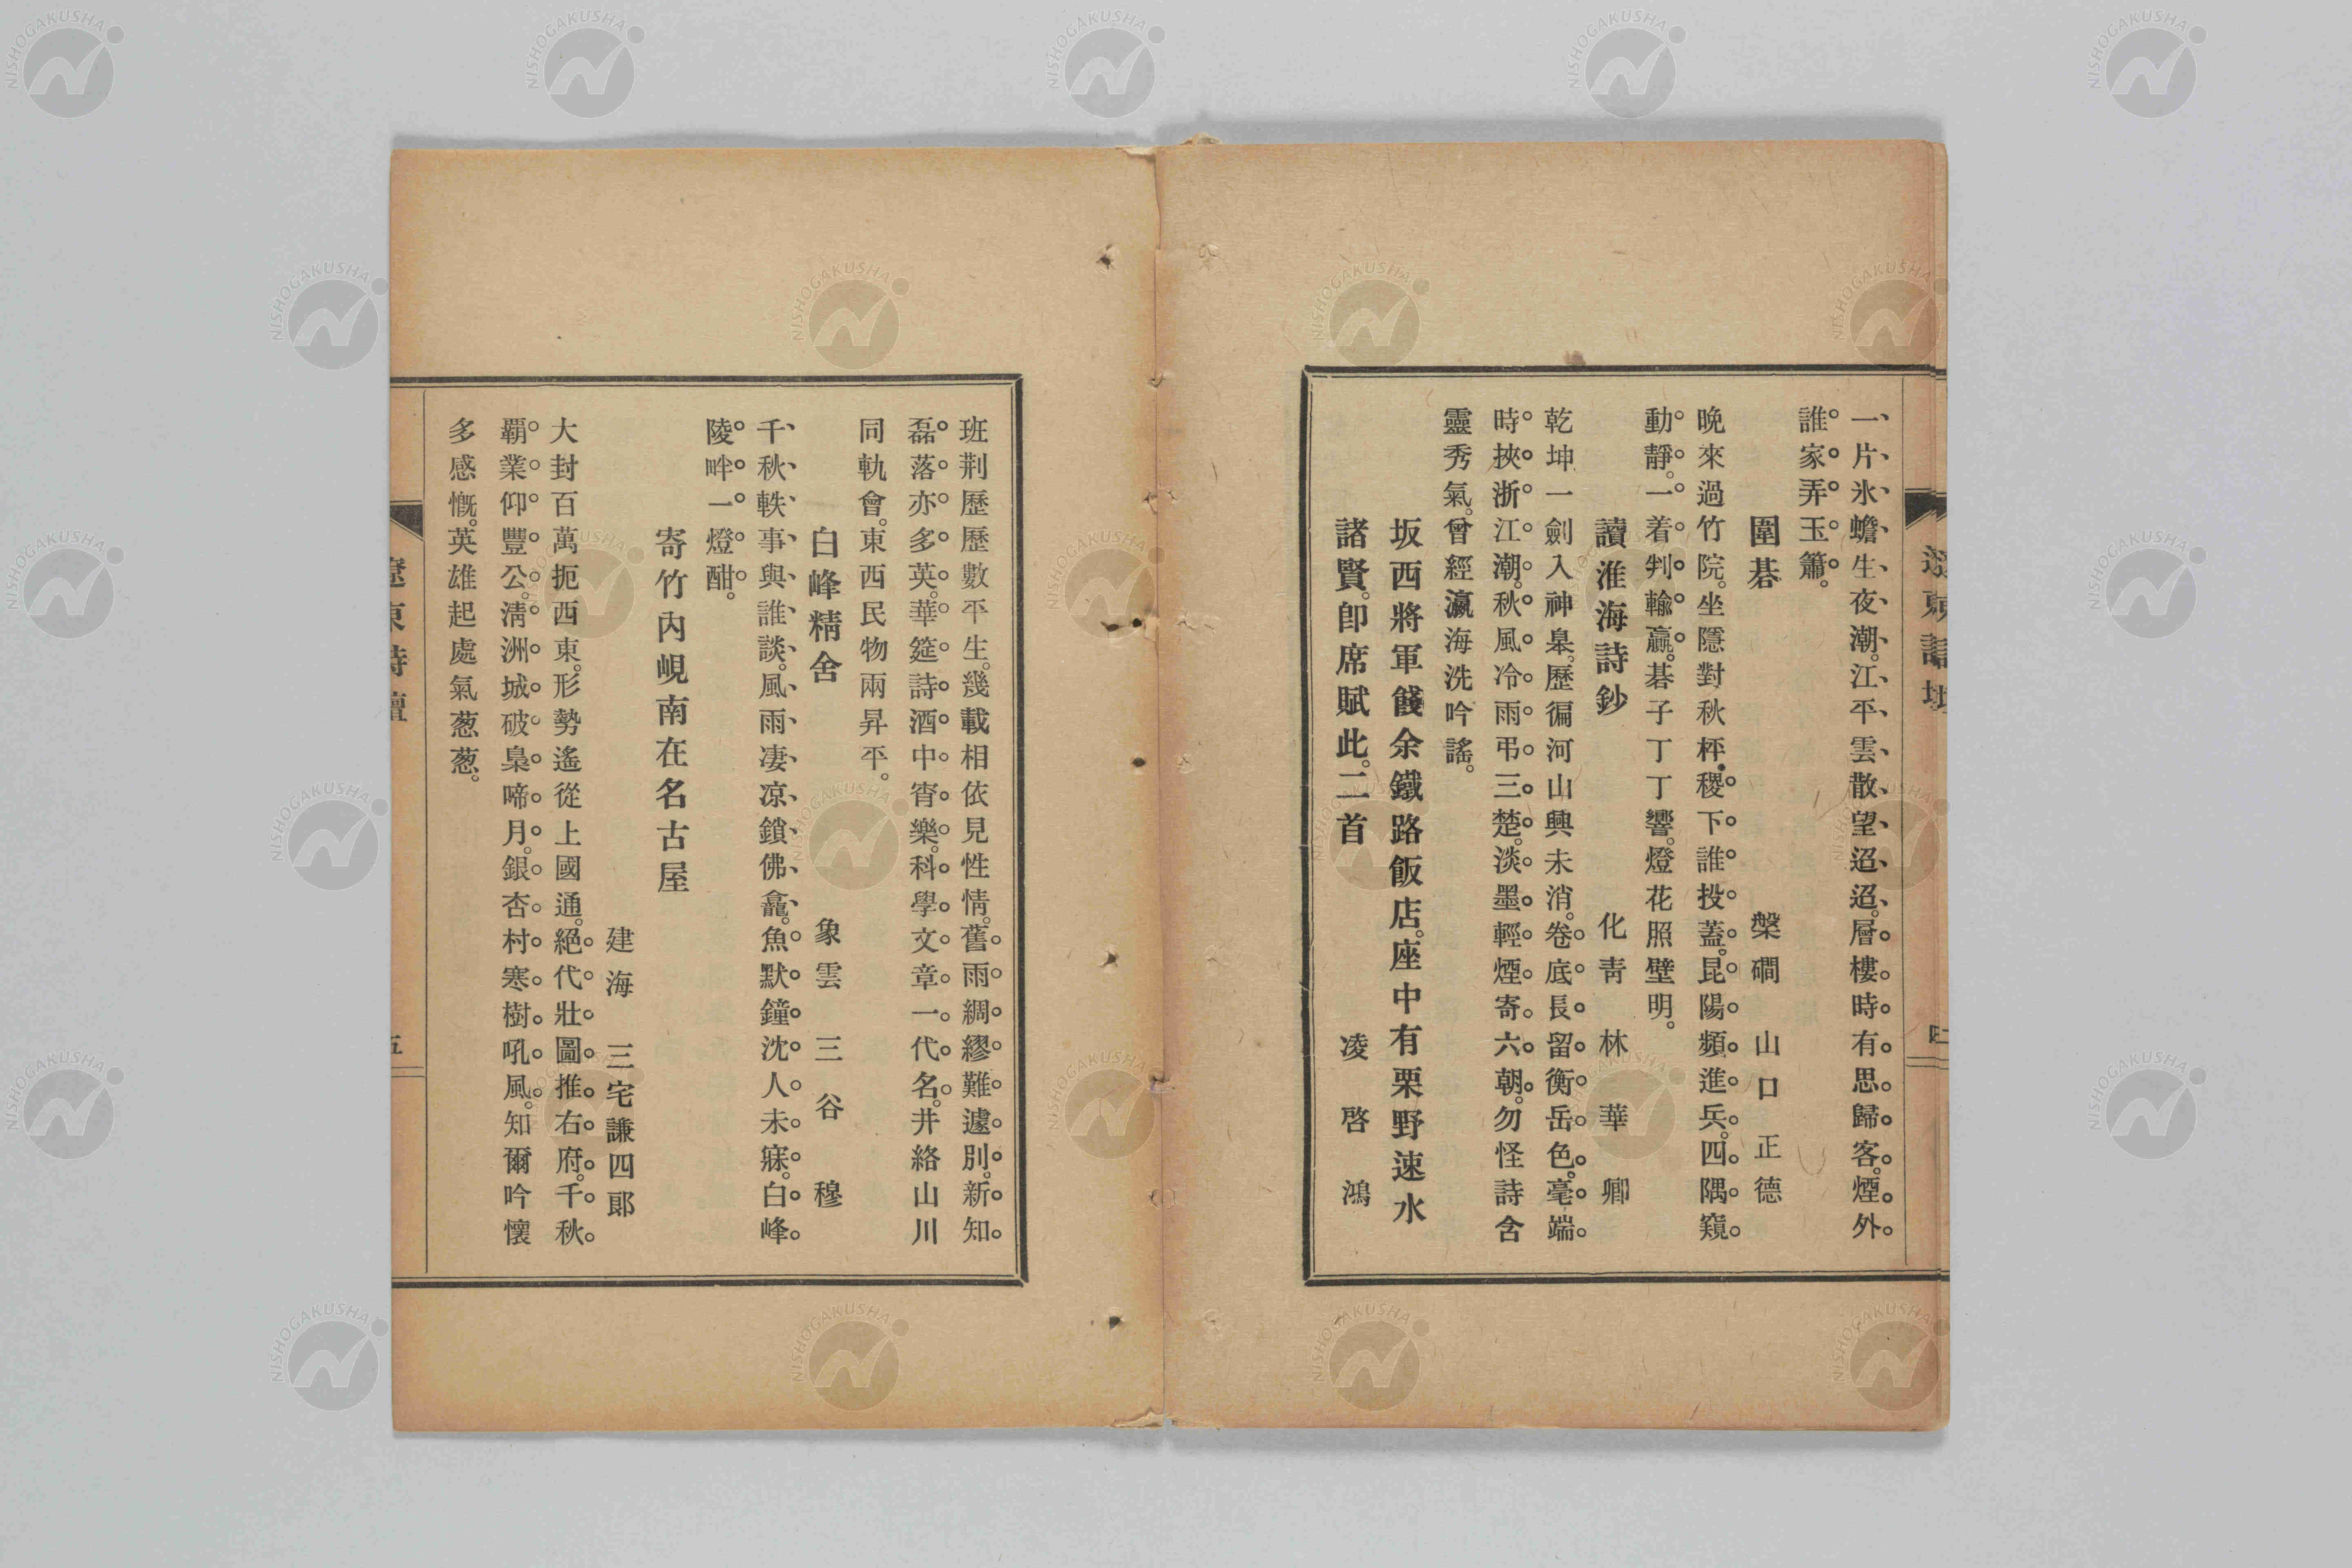 一片氷蟾生夜潮。江平雲散望迢迢。層樓時有思歸客。煙外
誰家弄玉簫。
圍碁
槃磵 山口正德
晩來過竹院。坐隱對秋枰。稷下誰投蓋。昆陽頻進兵。四隅窺
動靜。一着判輸贏。碁子丁丁響。燈花照壁明。
讀淮海詩鈔
化靑 林華卿
乾坤一劍入神皋。歷徧河山興未消。卷底長留衡岳色。毫端
時挾浙江潮。秋風冷雨弔三楚。淡墨輕煙寄六朝。勿怪詩含
靈秀氣。曾經瀛海洗吟謠。
坂西將軍餞余鐵路飯店。座中有栗野速水
諸賢。卽席賦此。二首
凌啓鴻
班荆歷歷數平生。幾載相依見性情。舊雨綢繆難遽別。新知
磊落亦多英。華筵詩酒中宵樂。科學文章一代名。井絡山川
同軌會。東西民物兩昇平。
白峰精舍
象雲 三谷穆
千秋軼事與誰談。風雨凄凉鎖佛龕。魚默鐘沈人未寐。白峰
陵畔一燈酣。
寄竹內峴南在名古屋
建海 三宅謙四郞
大封百萬扼西東。形勢遙從上國通。絕代壯圖推右府。千秋
覇業仰豐公。淸洲城破梟啼月。銀杏村寒樹吼風。知爾吟懷
多感慨。英雄起處氣葱葱。
遼東詩壇
五
NISHOGAKUSHA